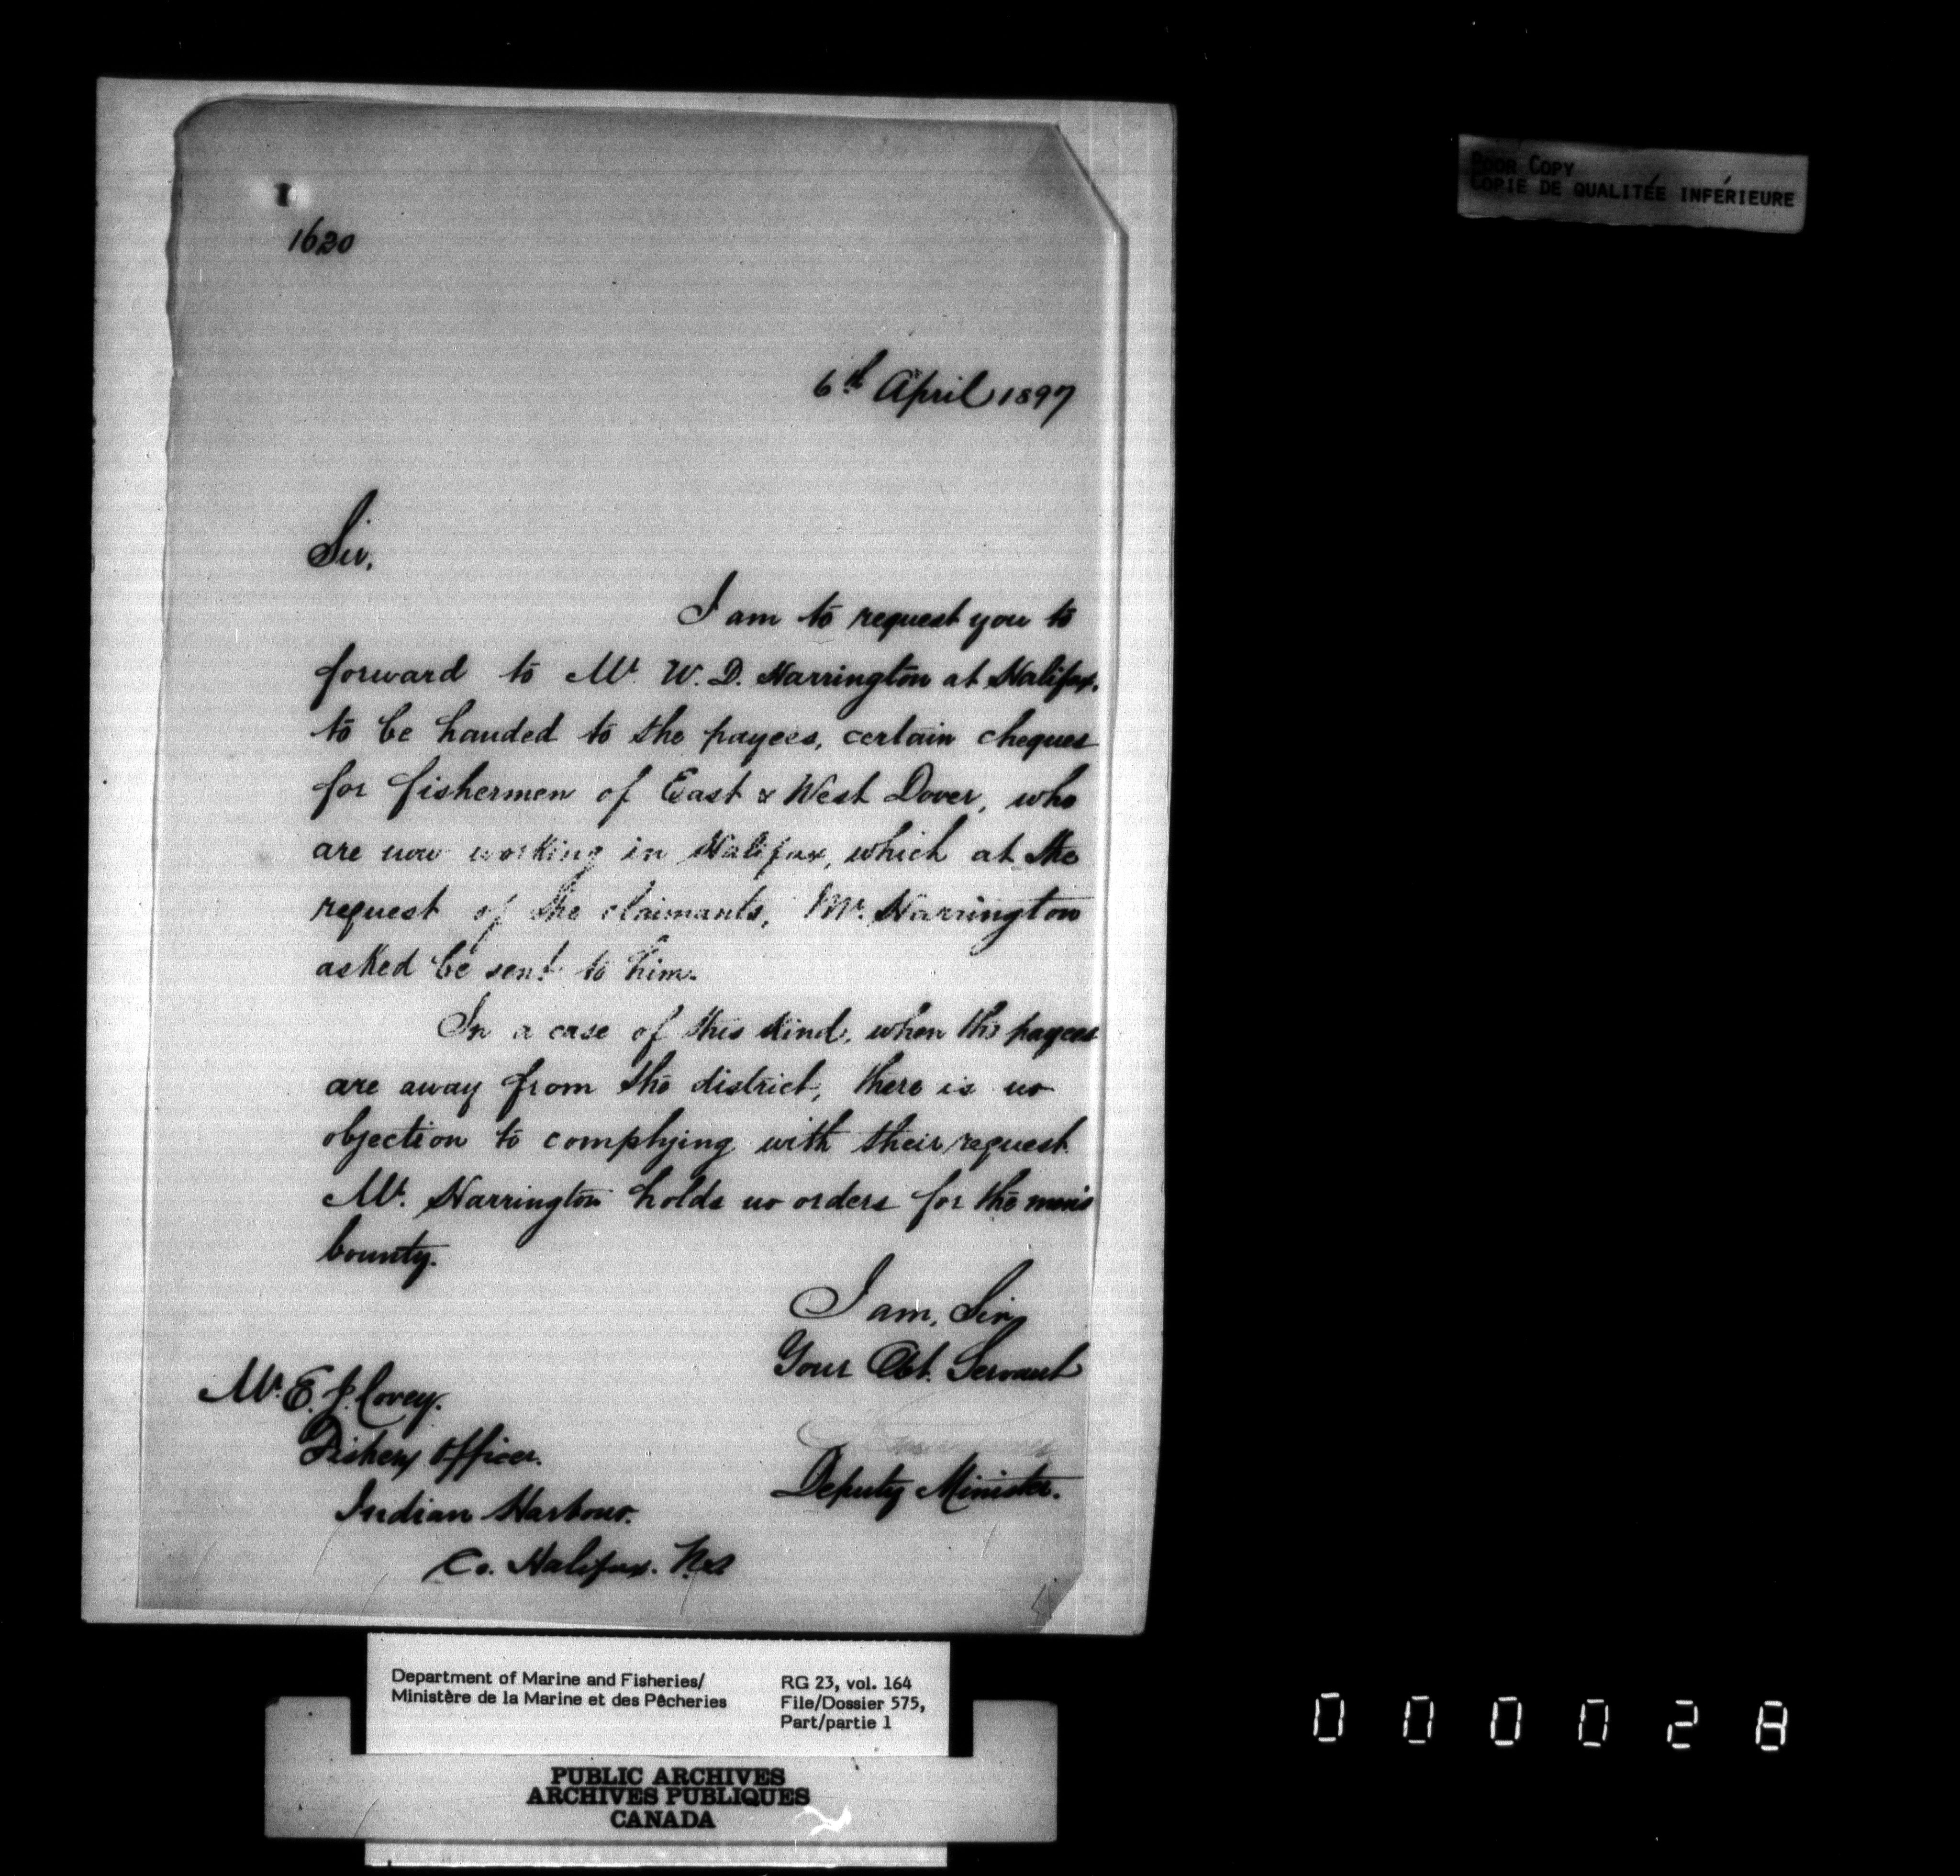 1620
6th April 1897
Sir,
I am to request you to
forward to Mr. W. D. Harrington at Halifax,
to be handed to the payees, certain cheques
for fishermen of East & West Dover, who
are now working in Halifax, which at the
request of the claimants, Mr. Harrington
asked be sent to him.
In a case of this kind, when the payees
are away from the district, there is no
objection to complying with their request.
Mr. Harrington holds no orders for the men's
bounty.
I am, Sir,
Your Obt. Servant
Deputy Minister.
Mr. E. J. Covey.
Fishery Officer.
Indian Harbour.
Co. Halifax. N.S.
POOR COPY
COPIE DE QUALITÉE INFÉRIEURE
Department of Marine and Fisheries/
Ministère de la Marine et des Pêcheries
RG 23, vol. 164
File/Dossier 575,
Part/partie 1
PUBLIC ARCHIVES
ARCHIVES PUBLIQUES
CANADA
000028